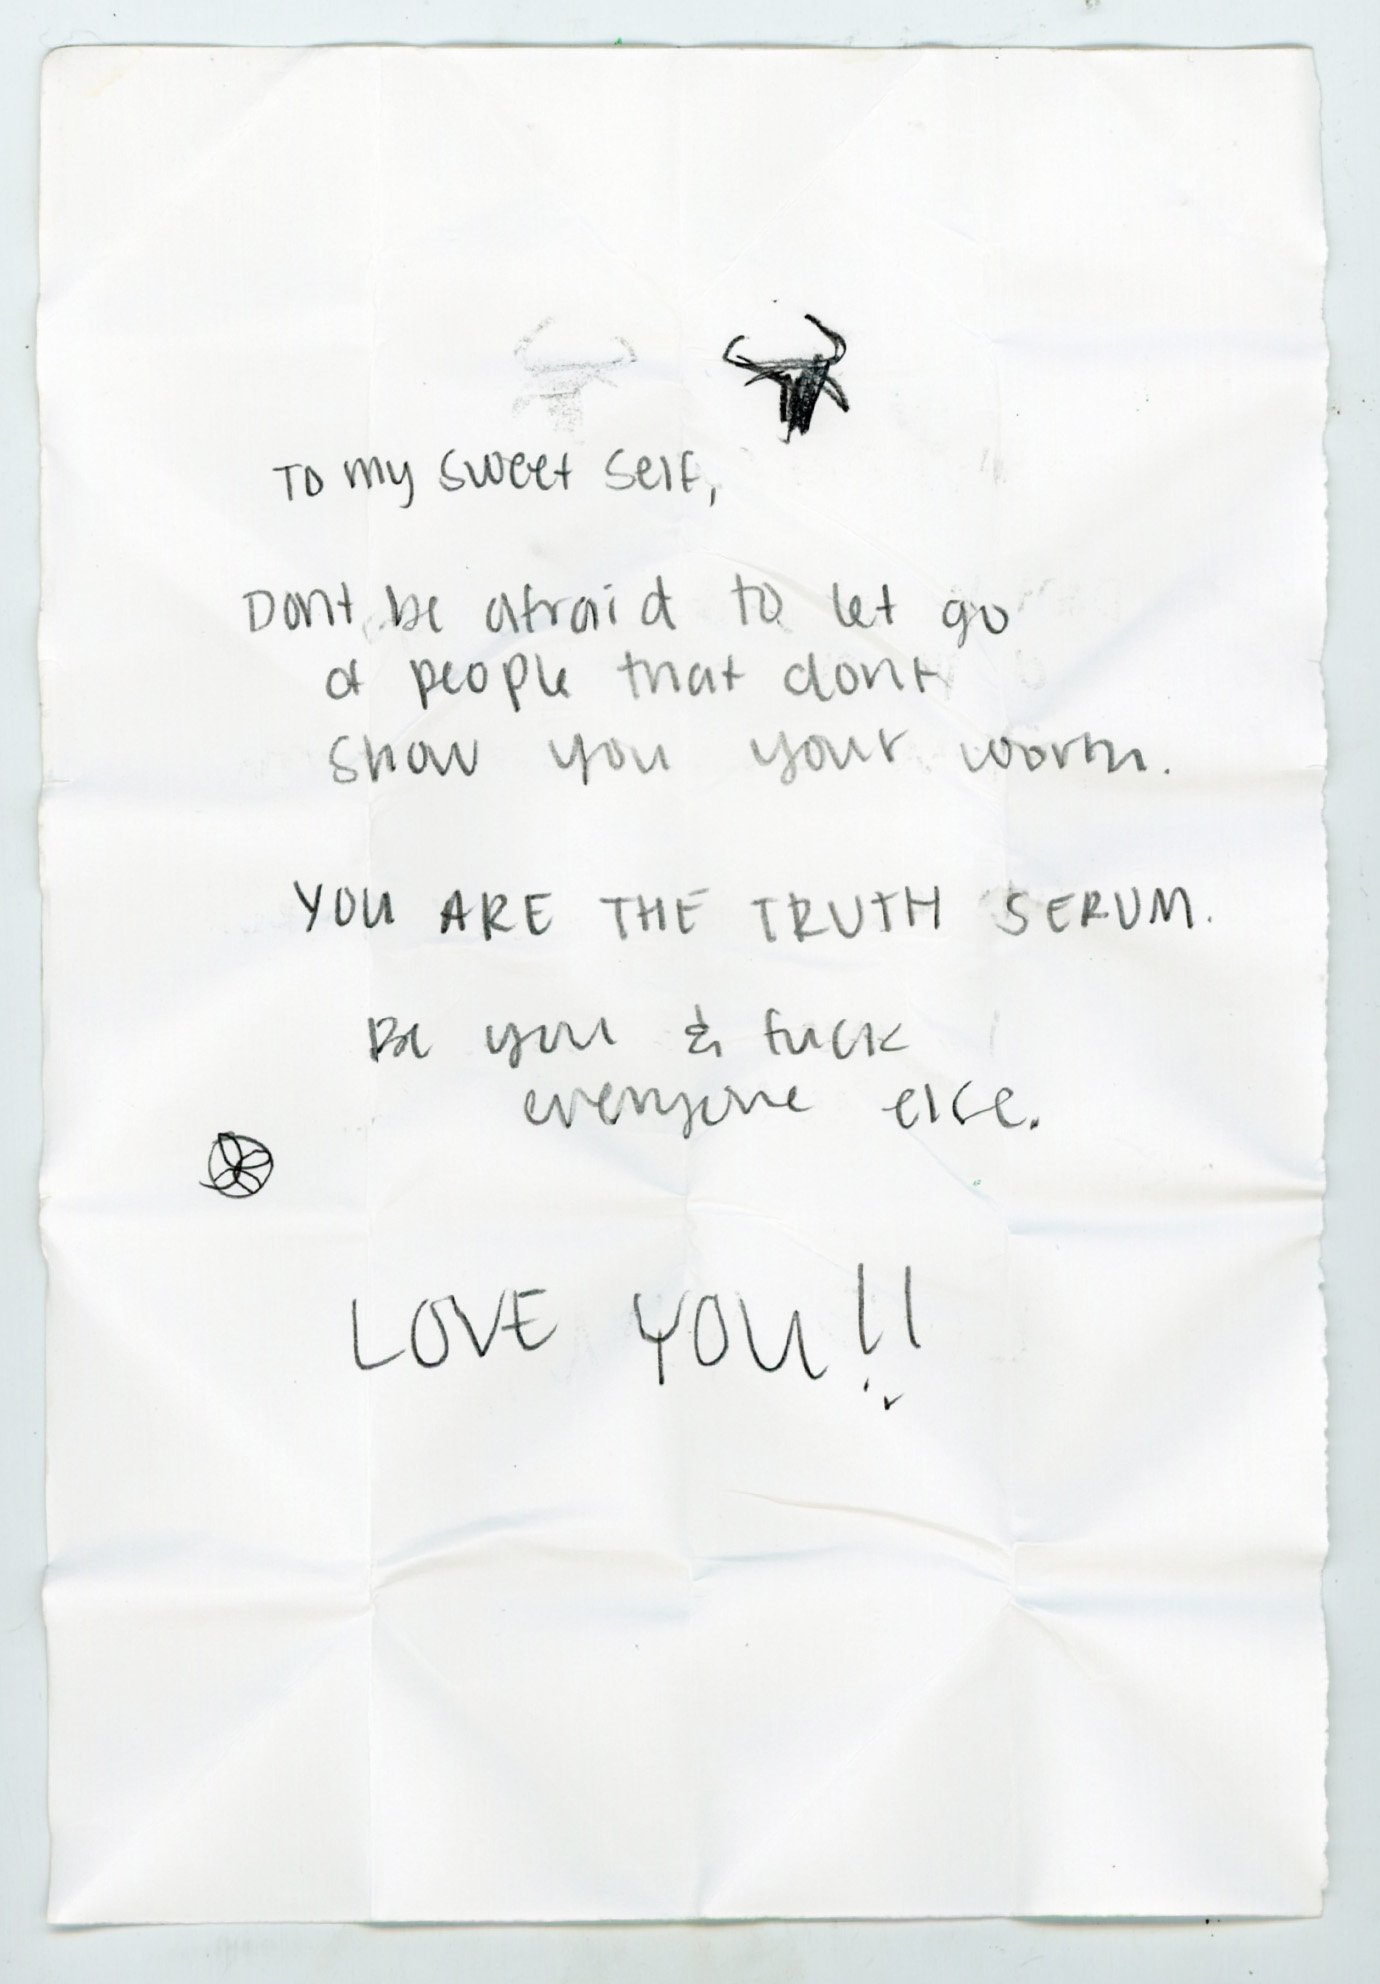 To my sweet self,
Dont be afraid to let go
of people that dont
show you your worth.
YOU ARE THE TRUTH SERUM.
Be you & fuck
everyone else.
LOVE YOU!!